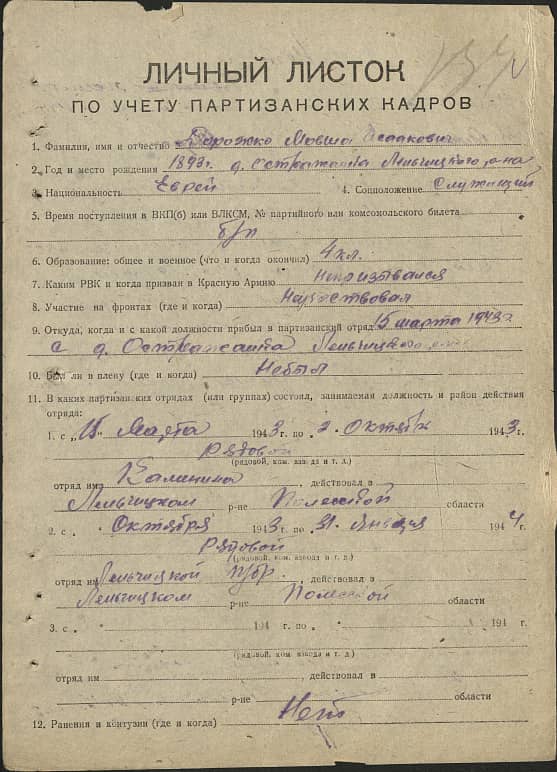 ЛИЧНЫЙ ЛИСТОК
ПО УЧЕТУ ПАРТИЗАНСКИХ КАДРОВ
1. Фамилия, имя и отчество Дорожко Мовша Исаакович
2. Год и место рождения 1893г. д. Остражанка Лельчицкого р-на
3. Национальность Еврей 4. Соцположение Служащий
5. Время поступления в ВКП(б) или ВЛКСМ, № партийного или комсомольского билета
б/п
6. Образование: общее и военное (что и когда окончил) 4 кл.
7. Каким РВК и когда призван в Красную Армию Непризывался
8. Участие на фронтах (где и когда) Неучаствовал
9. Откуда, когда и с какой должности прибыл в партизанский отряд 15 марта 1943г
с д. Остражанка Лельчицкого
10. Был ли в плену (где и когда) Небыл
11. В каких партизанских отрядах (или группах) состоял, занимаемая должность и район действия
отряда:
1. с „15 Марта 1943 г. по 2. Октября 1943 г.
Рядовой
(рядовой, ком. взвода и т. д.)
отряд им. Калинина, действовал в
Лельчицком р-не Полесской области
2. с „ Октября 1943 г. по 31. Января 1944 г.
Рядовой
(рядовой, ком. взвода и т. д.)
отряд им. Лельчицкой пбр., действовал в
Лельчицком р-не Полесской области
3. с „ “ 194 г. по „ “ 194 г.
(рядовой, ком. взвода и т. д.)
отряд им. , действовал в
р-не области
12. Ранения и контузии (где и когда) Нет